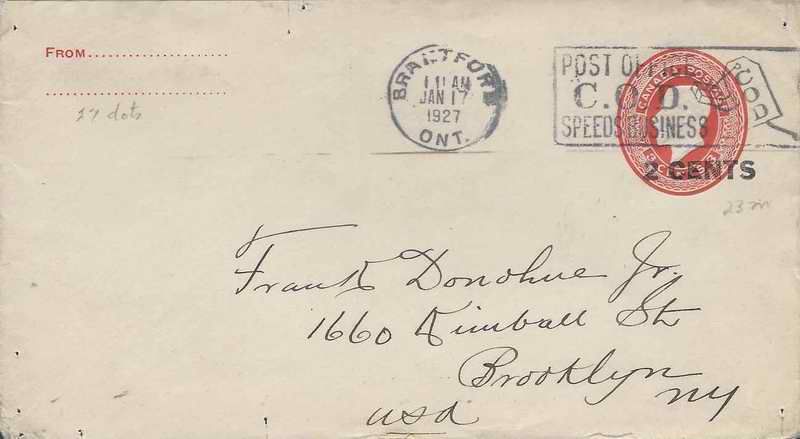 FROM.....................
...........................
27 dots
BRANTFORD
11 AM
JAN 17
1927
ONT.
POST OFFICE
C.O.D.
SPEEDS BUSINESS
CANADA POSTAGE
2 CENTS
23 m
Frank Donohue Jr.
1660 Kimball St
Brooklyn
NY
USA